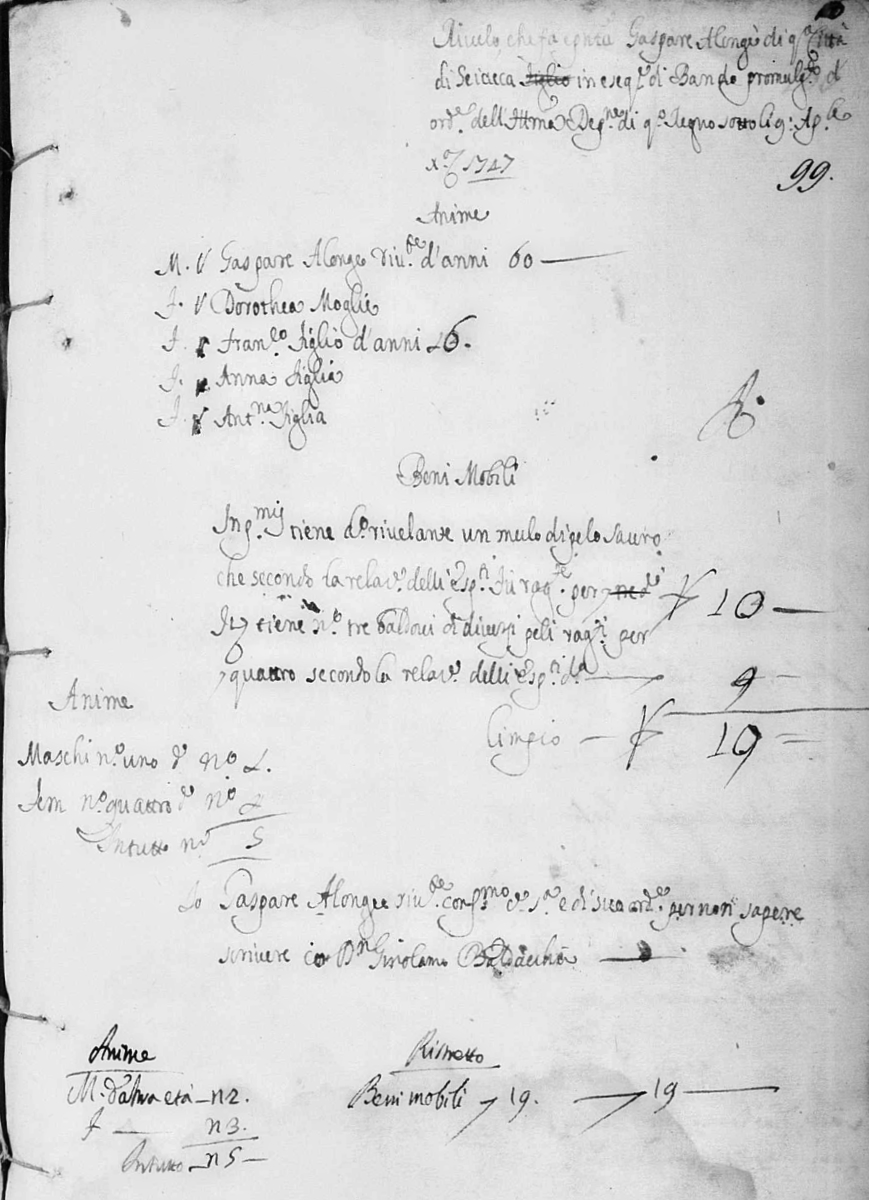 Rivelo, che fa e pnta Gaspare Alongè di qa Città
di Sciacca figlio in eseqe di Bando promulgto d'
orde dell'Illma Depne di qo Regno sotto li 9: Aple
1747
99.
Anime
M. V Gaspare Alongeo rivte d'anni 60
F. V Dorothea Moglie
F. Franco figlio d'anni 26.
F. Anna figlia
F. V Antna figlia
Beni Mobili
tiene do rivelante un mulo di pelo sauro
che secondo la relaz. delli Espti per 10
tiene no tre di diversi peli per
quattro secondo la relaz. delli Espti 9
Limpio 19
Anime
Maschi no uno d no 1.
Fem no quattro d no 4
In tutto no 5
Io Gaspare Alongeo rivte confmo do sa e di suo orde per non sapere
scrivere io Dn Girolamo
Anime
M. d'altra età n 2.
F n 3.
In tutto n 5
Ristretto
Beni mobili 19. 19